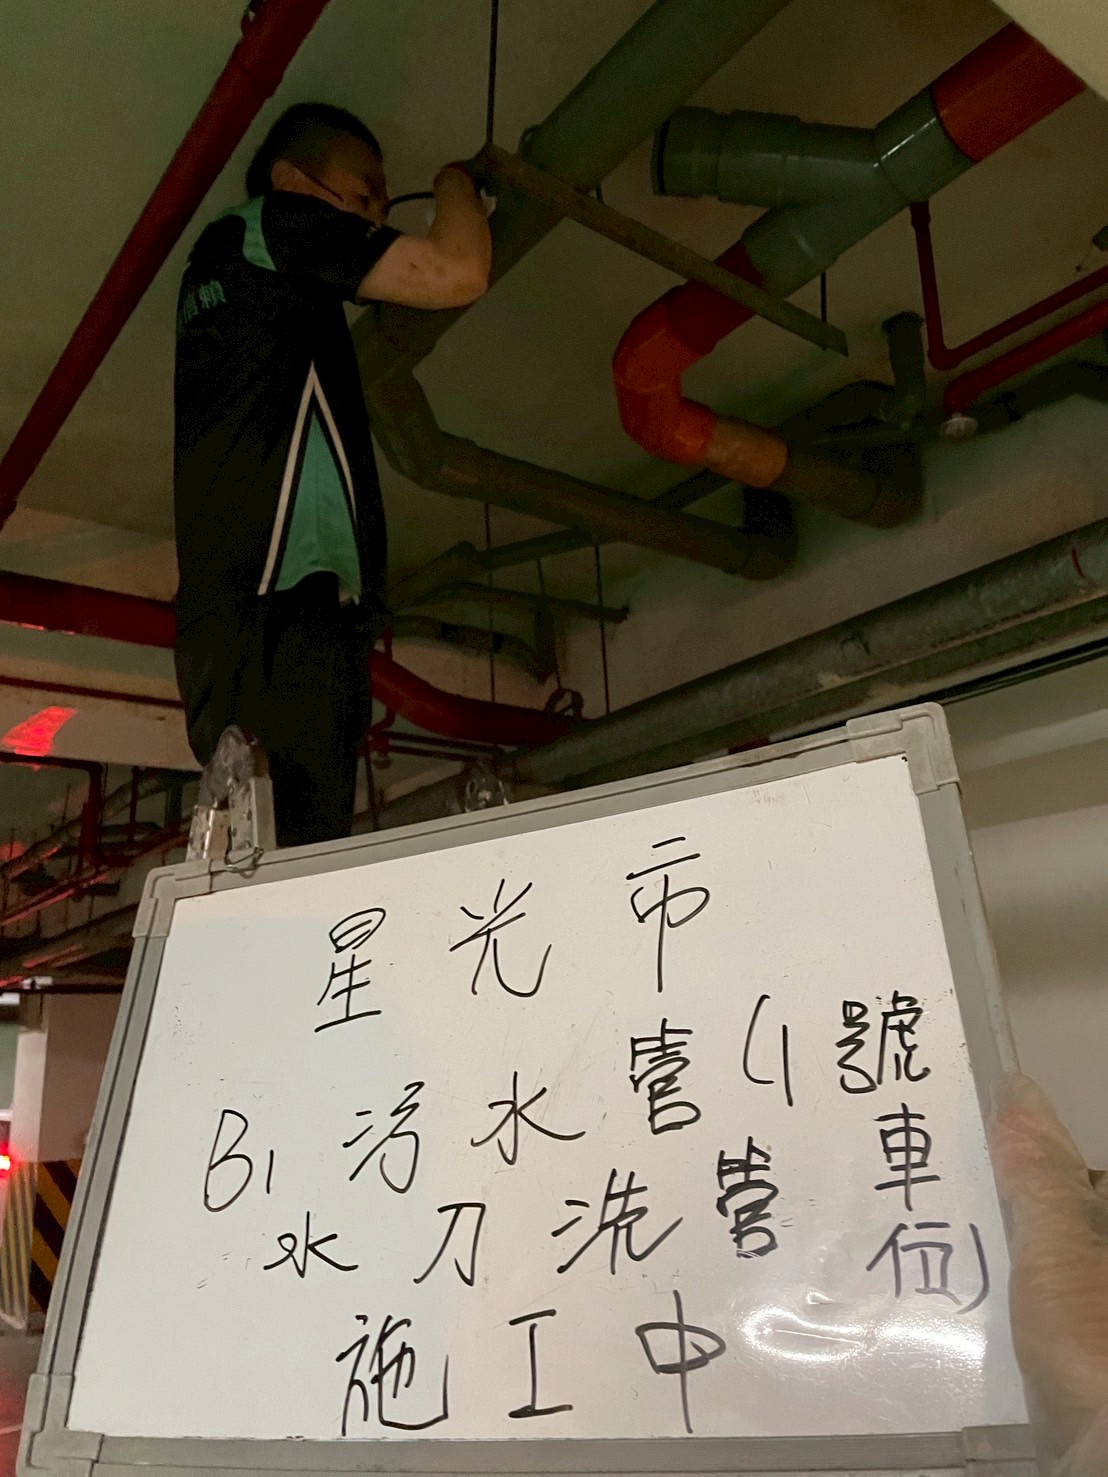 信賴
星光市
B1污水管(1號車位)
水刀洗管
施工中